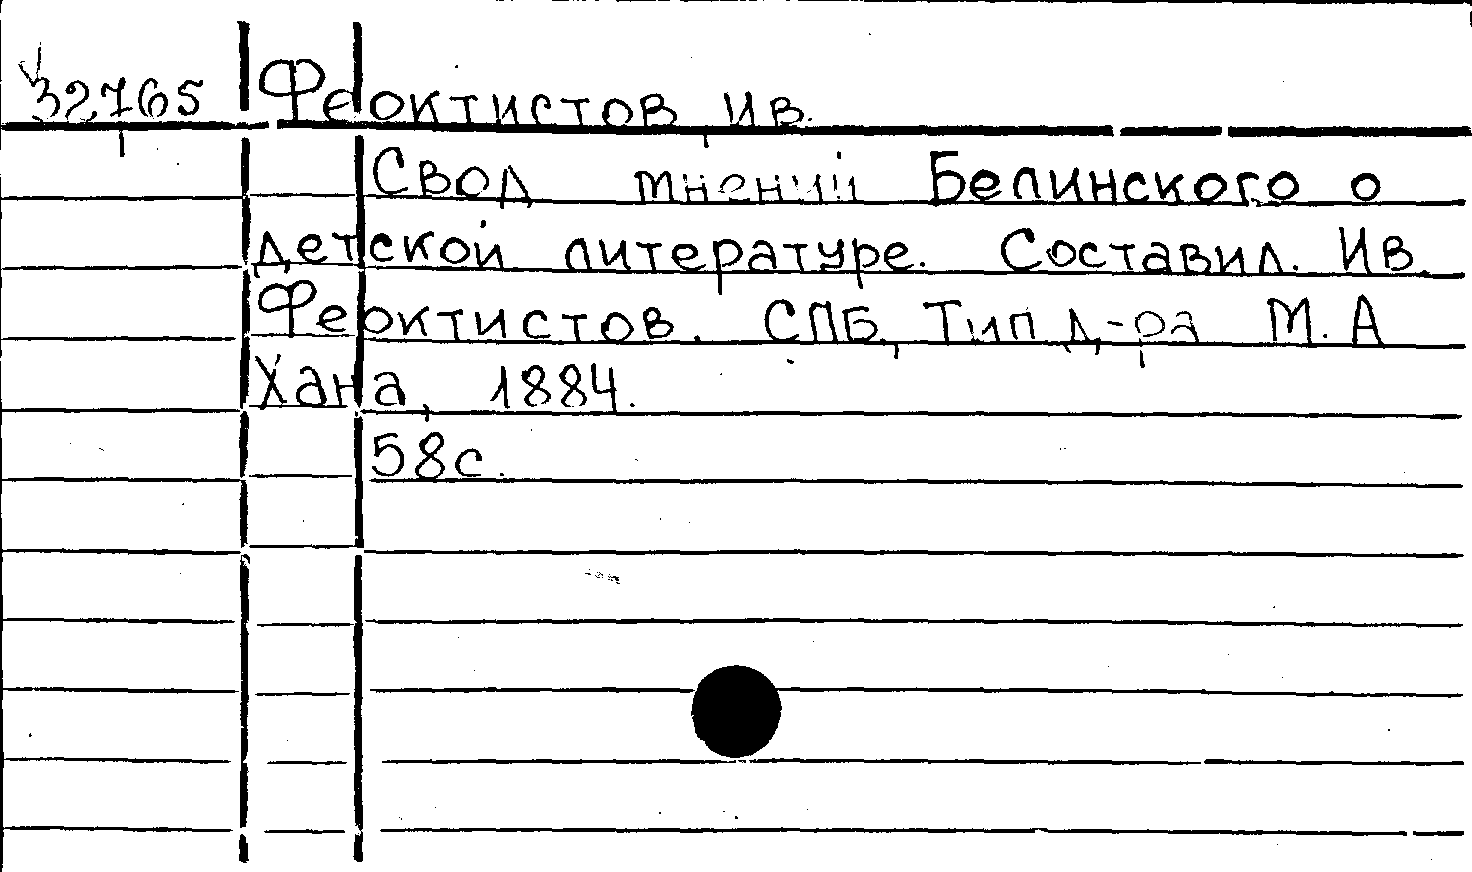 32765 Феоктистов, Ив.
Свод мнений Белинского о
детской литературе. Составил. Ив.
Феоктистов. СПБ, Тип д-ра М. А
Хана, 1884.
58с.